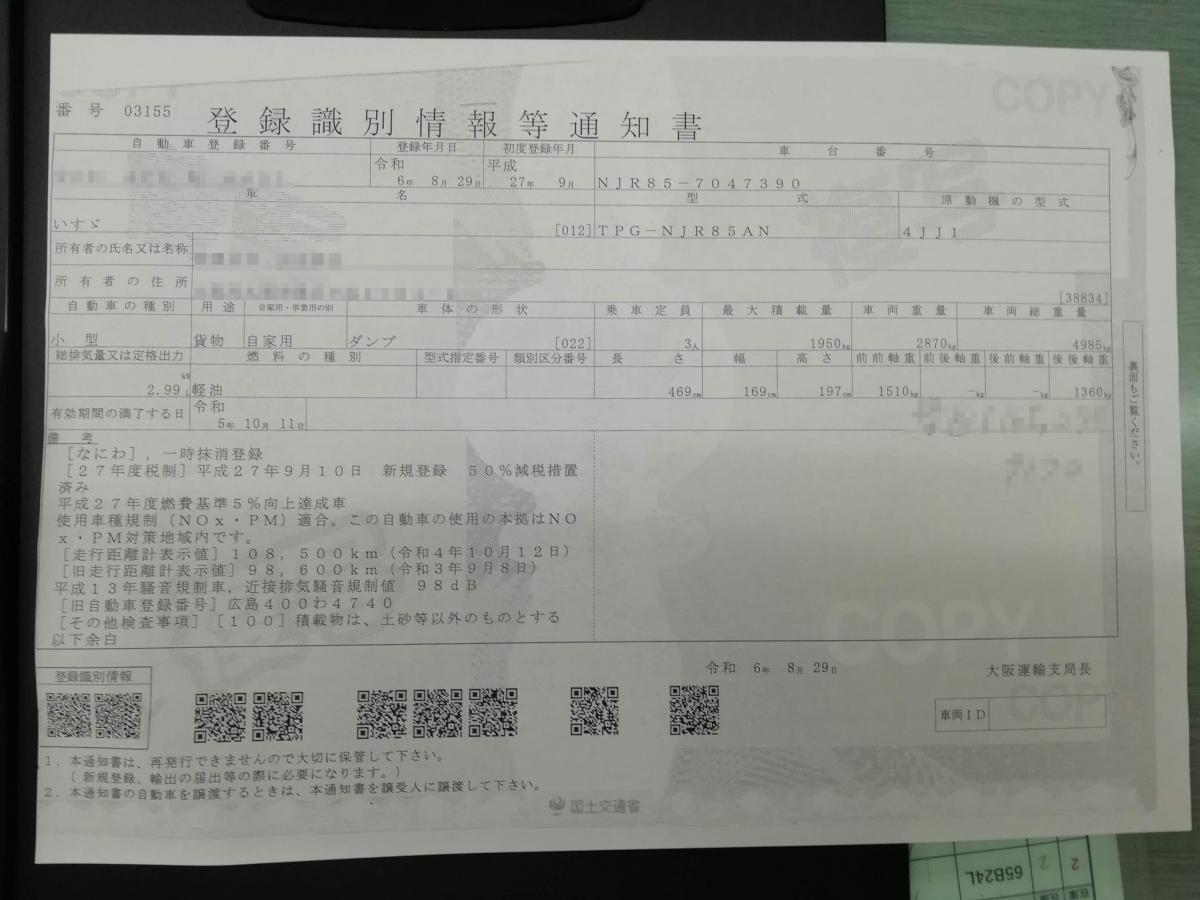 番 号 03155 登録識別情報等通知書
COPY
自動車登録番号 登録年月日 初度登録年月 車台番号
令和 平成
6年 8月 29日 27年 9月 NJR85-7047390
車名 型式 原動機の型式
いすゞ [012] TPG-NJR85AN 4JJ1
所有者の氏名又は名称
所有者の住所
[38834]
自動車の種別 用途 自家用・事業用の別 車体の形状 乗車定員 最大積載量 車両重量 車両総重量
小型 貨物 自家用 ダンプ [022] 3人 1950kg 2870kg 4985kg
総排気量又は定格出力 燃料の種別 型式指定番号 類別区分番号 長さ 幅 高さ 前前軸重 前後軸重 後前軸重 後後軸重
kW
2.99 L 軽油 469cm 169cm 197cm 1510kg -kg -kg 1360kg
有効期間の満了する日 令和
5年 10月 11日
備考
[なにわ],一時抹消登録
[27年度税制]平成27年9月10日 新規登録 50%減税措置
済み
平成27年度燃費基準5%向上達成車
使用車種規制(NOx・PM)適合。この自動車の使用の本拠はNO
x・PM対策地域内です。
[走行距離計表示値]108,500km(令和4年10月12日)
[旧走行距離計表示値]98,600km(令和3年9月8日)
平成13年騒音規制車,近接排気騒音規制値 98dB
[旧自動車登録番号]広島400わ4740
[その他検査事項][100]積載物は、土砂等以外のものとする
以下余白
裏面もご覧ください。
複写
COPY
登録識別情報
令和 6年 8月 29日 大阪運輸支局長
車両ID
COPY
1.本通知書は、再発行できませんので大切に保管して下さい。
(新規登録、輸出の届出等の際に必要になります。)
2.本通知書の自動車を譲渡するときは、本通知書を譲受人に譲渡して下さい。
国土交通省
65B24L
2
2
在庫
在庫